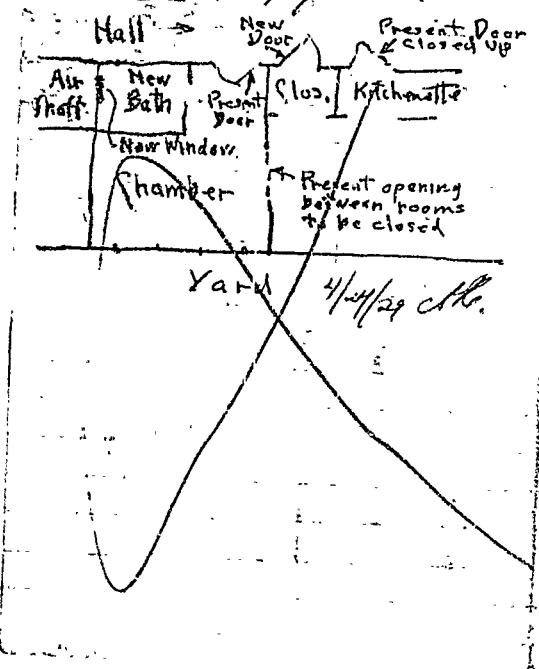 Hall
New
Door
Present Door
Closed Up
Air
Shaft
New
Bath
Present
Door
Clos.
Kitchenette
New Window.
Chamber
Present opening
between rooms
to be closed
Yard
4/24/29